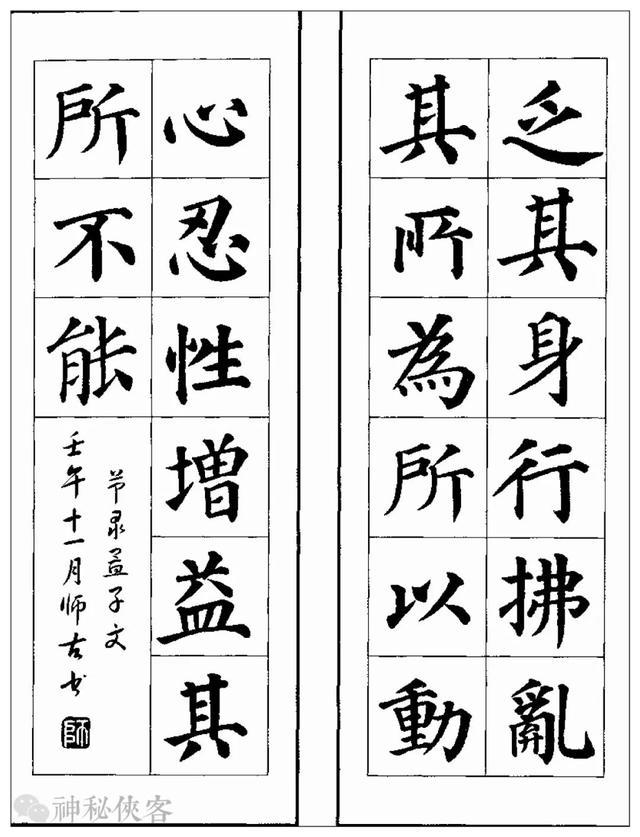 乏其身行拂亂
其所為所以動
心忍性增益其
所不能
节录孟子文
壬午十一月师古书
师
神秘侠客